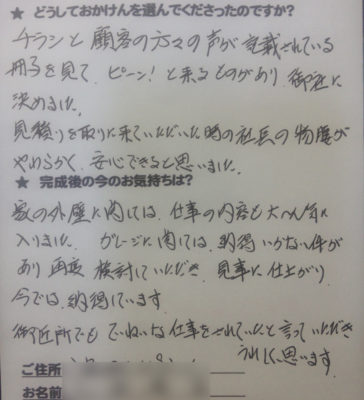 ★ どうしておかけんを選んでくださったのですか?
チラシと顧客の方々の声が記載されている
冊子を見て、ピーン!と来るものがあり御社に
決めました。
見積りを取りに来ていただいた時の社長の物腰が
やわらかく、安心できると思いました。
★ 完成後の今のお気持ちは?
家の外壁に関しては、仕事の内容も大へん気に
入りました。 ガレージに関しては、納得いかない件が
あり再度検討していただき、見事に仕上がり
今では納得しています。
御近所でもていねいな仕事をされていたと言っていただき
うれしく思います。
ご住所
お名前